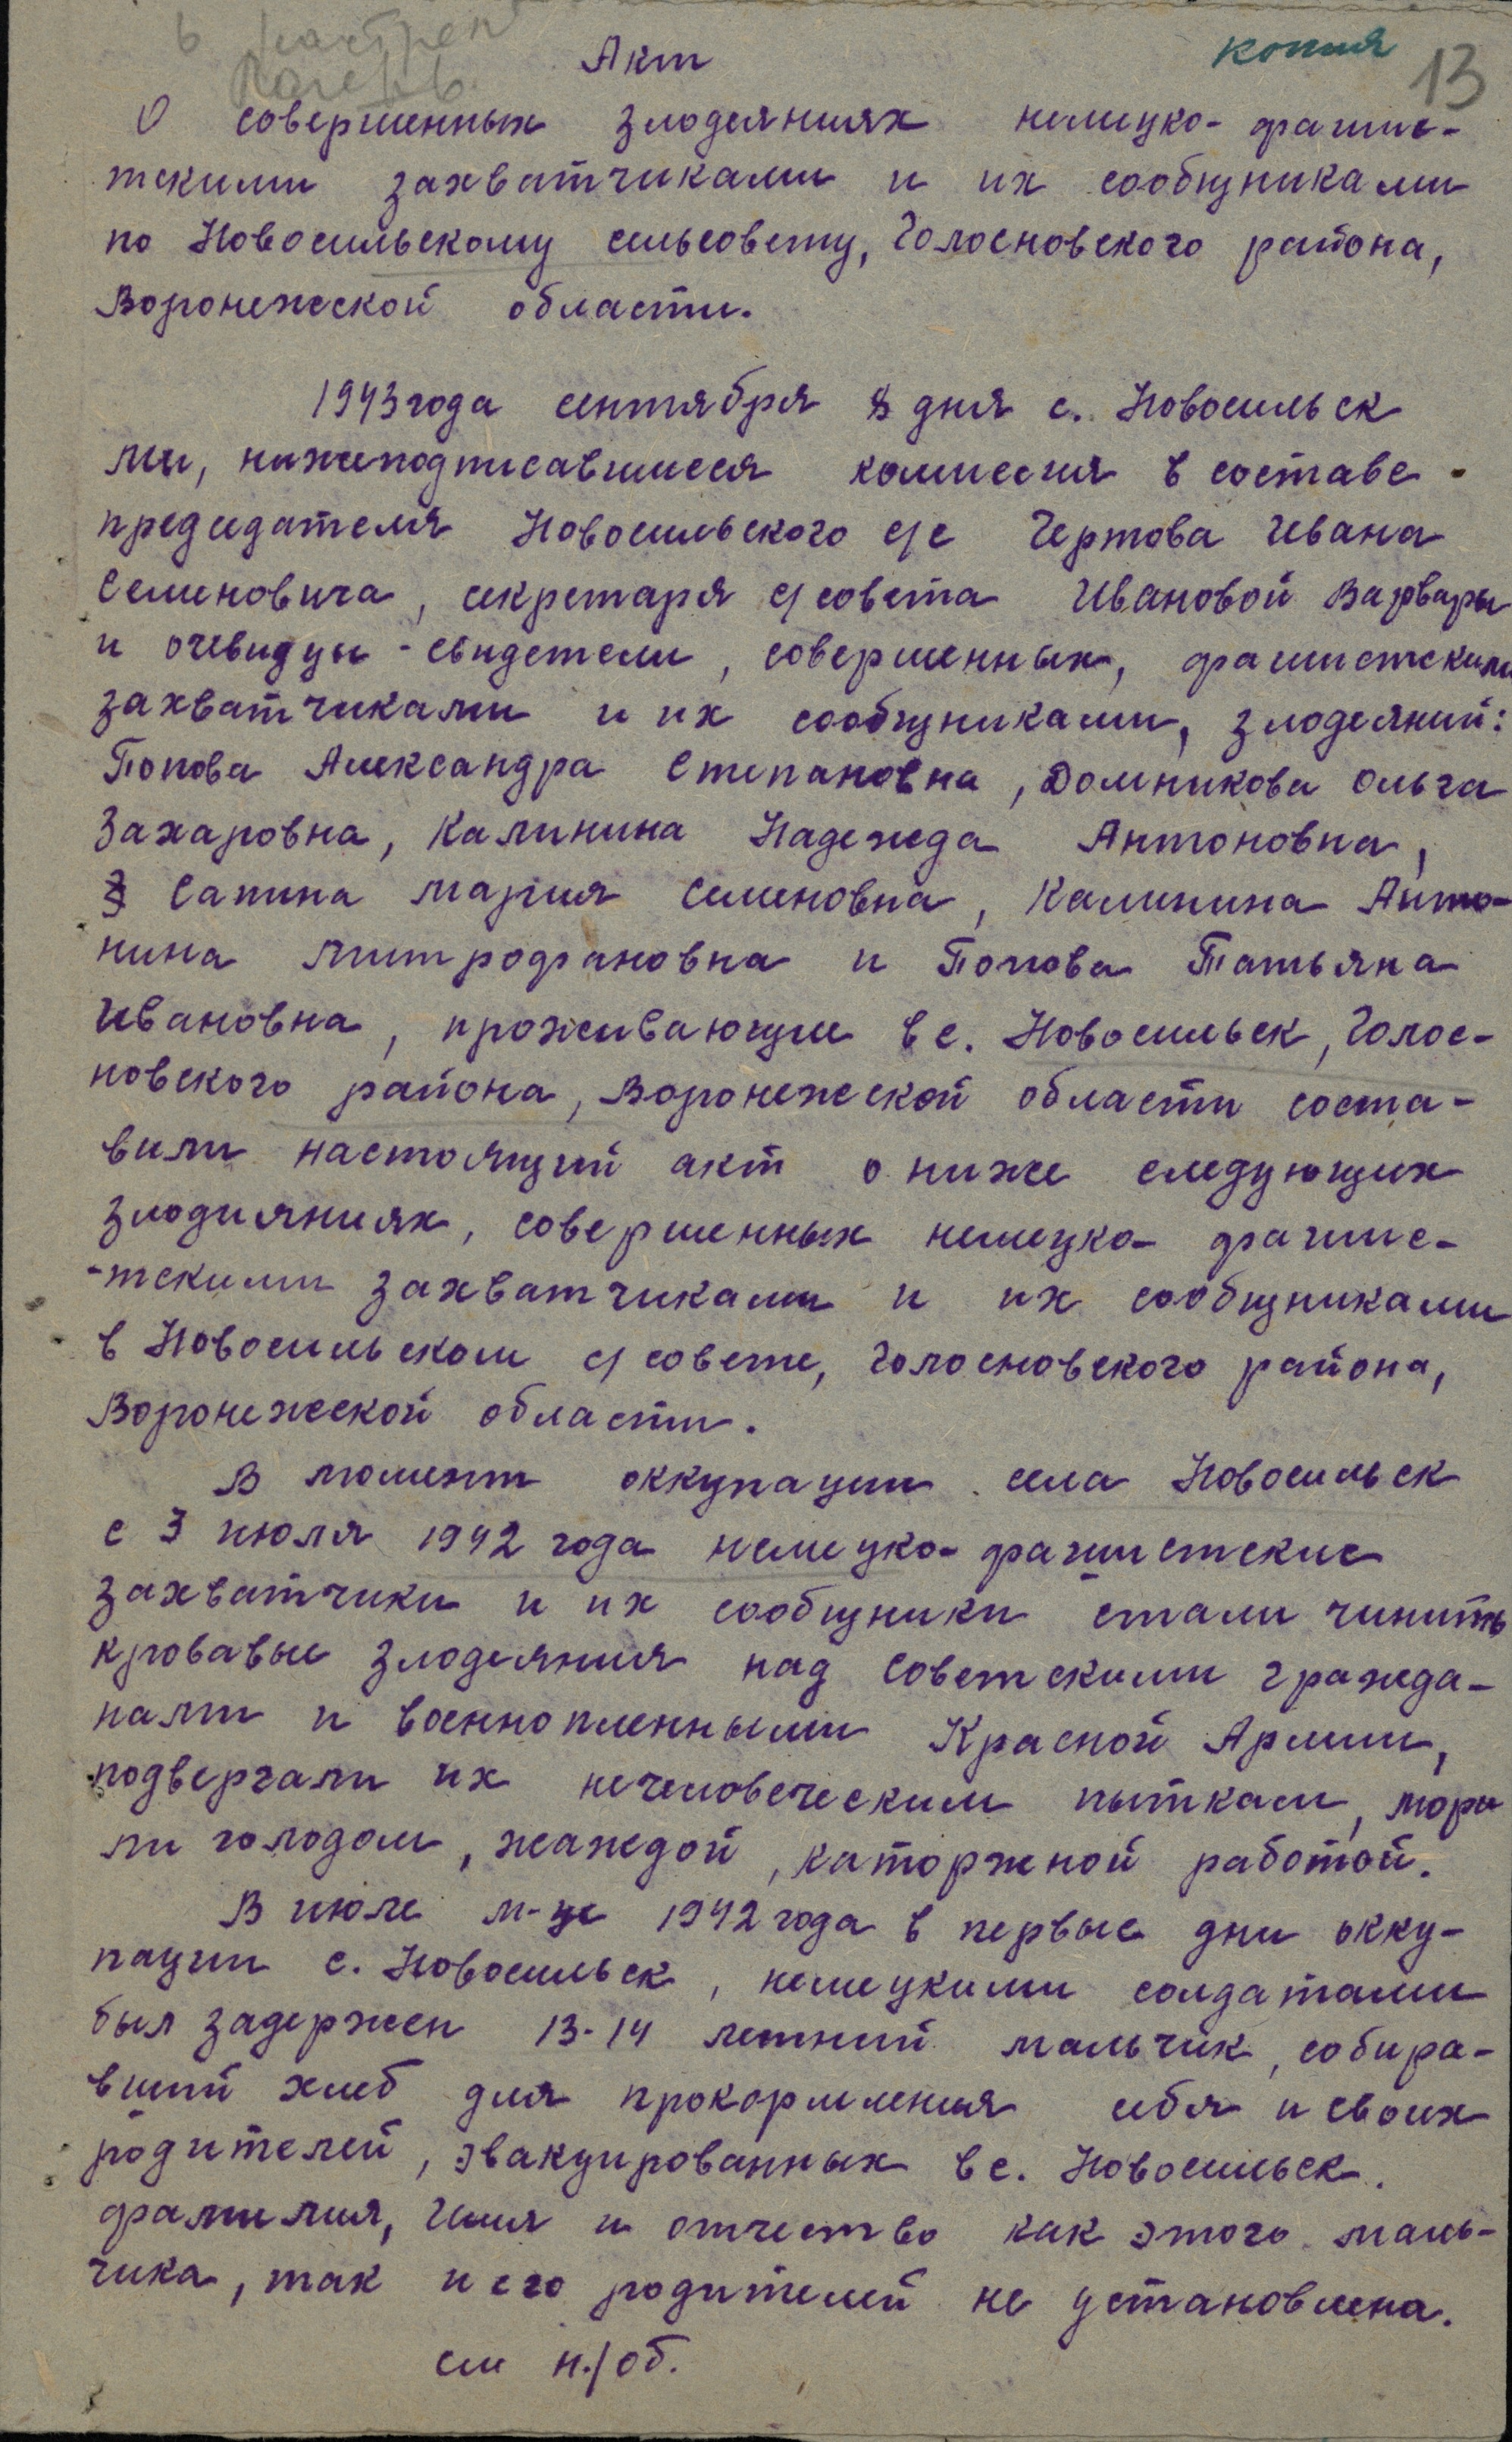 в
копия
13
Акт
О совершенных злодеяниях немецко-фашис-
тскими захватчиками и их сообщниками
по Новосильскому сельсовету, Голосновского района,
Воронежской области.
1943 года сентября 8 дня с. Новосильск
мы, нижеподписавшиеся комиссия в составе
председателя Новосильского с/с Чертова Ивана
Семеновича, секретаря с/совета Ивановой Варвары
и очевидцы-свидетели, совершенных, фашистскими
захватчиками и их сообщниками, злодеяний:
Попова Александра Степановна, Домникова Ольга
Захаровна, Калинина Надежда Антоновна,
Сапина Мария Семеновна, Калинина Анто-
нина Митрофановна и Попова Татьяна
Ивановна, проживающие в с. Новосильск, Голос-
новского района, Воронежской области соста-
вили настоящий акт о ниже следующих
злодияниях, совершенных немецко-фашис-
-тскими захватчиками и их сообщниками
в Новосильском с/совете, Голосновского района,
Воронежской области.
В момент оккупации села Новосильск
с 3 июля 1942 года немецко-фашистские
захватчики и их сообщники стали чинить
кровавые злодеяния над Советскими гражда-
нами и военнопленными Красной Армии,
подвергали их нечеловеческим пыткам, мори
ли голодом, жаждой, каторжной работой.
В июле м-це 1942 года в первые дни окку-
пации с. Новосильск, немецкими солдатами
был задержен 13-14 летний мальчик, собира-
вший хлеб для прокормления себя и своих
родителей, эвакуированных в с. Новосильск.
фамилия, Имя и отчество как этого маль-
чика, так и его родителей не установлена.
см н./об.